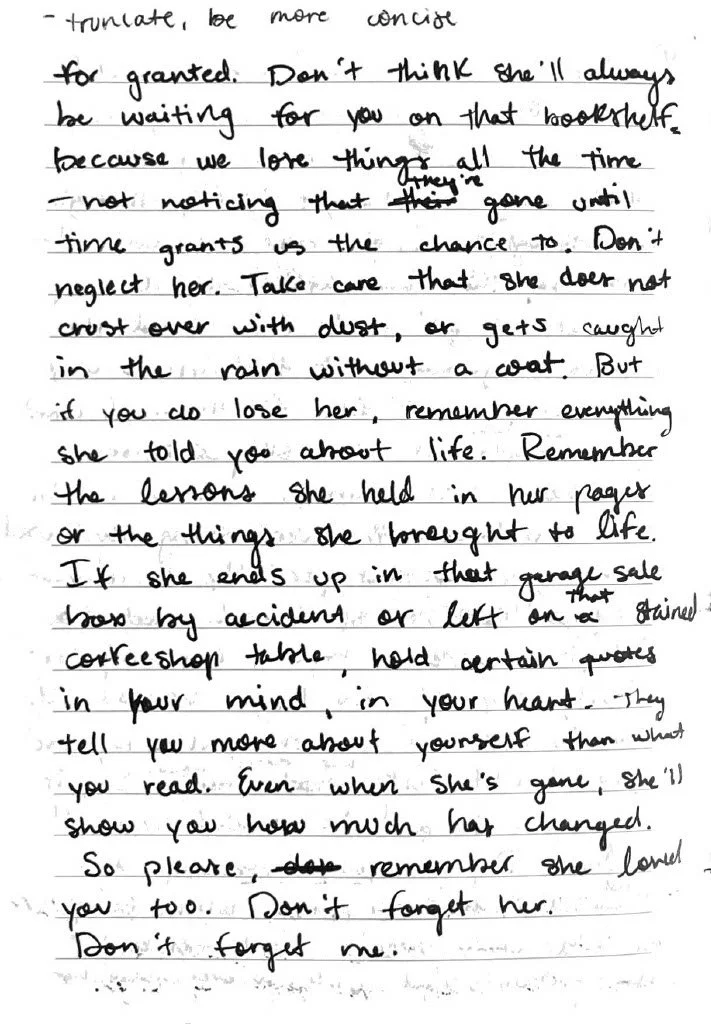 - truncate, be more concise
for granted. Don't think she'll always
be waiting for you on that bookshelf.
because we lose things all the time
- not noticing that they're gone until
time grants us the chance to. Don't
neglect her. Take care that she does not
crust over with dust, or gets caught
in the rain without a coat. But
if you do lose her, remember everything
she told you about life. Remember
the lessons she held in her pages
or the things she brought to life.
If she ends up in that garage sale
box by accident or left on that stained
coffeeshop table, hold certain quotes
in your mind, in your heart. They
tell you more about yourself than what
you read. Even when she's gone, she'll
show you how much has changed.
So please, remember she loved
you too. Don't forget her.
Don't forget me.